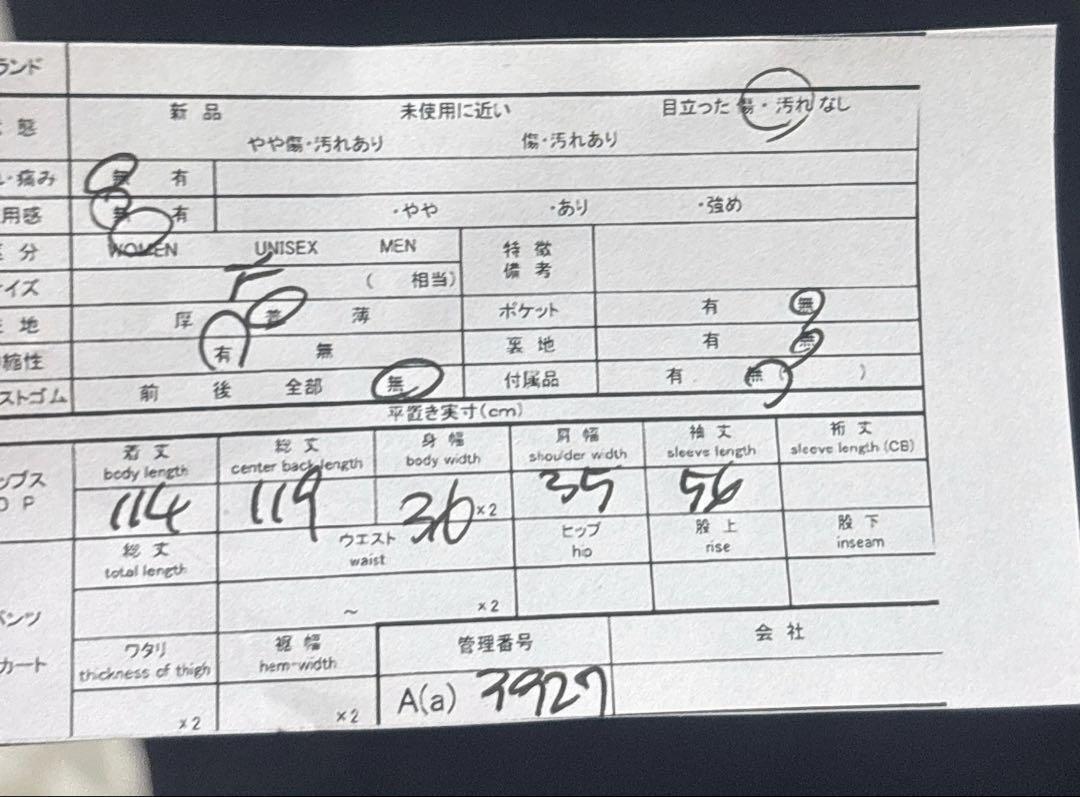 ランド
新品 未使用に近い 目立った 傷・汚れ なし
態 やや傷・汚れあり 傷・汚れあり
・痛み 無 有
用感 無 有 ・やや ・あり ・強め
分 WOMEN UNISEX MEN 特徴
備考
イズ F ( 相当)
地 厚 普 薄 ポケット 有 無
縮性 有 無 裏地 有 無
ストゴム 前 後 全部 無 付属品 有 無 ( )
平置き実寸(cm)
ップス 着丈 総丈 身幅 肩幅 袖丈 裄丈
body length center back length body width shoulder width sleeve length sleeve length (CB)
OP 114 119 36 ×2 35 56
総丈 ウエスト ヒップ 股上 股下
total length waist hip rise inseam
パンツ ～ ×2
カート ワタリ 裾幅 管理番号 会社
thickness of thigh hem-width
×2 ×2 A(a) 3927